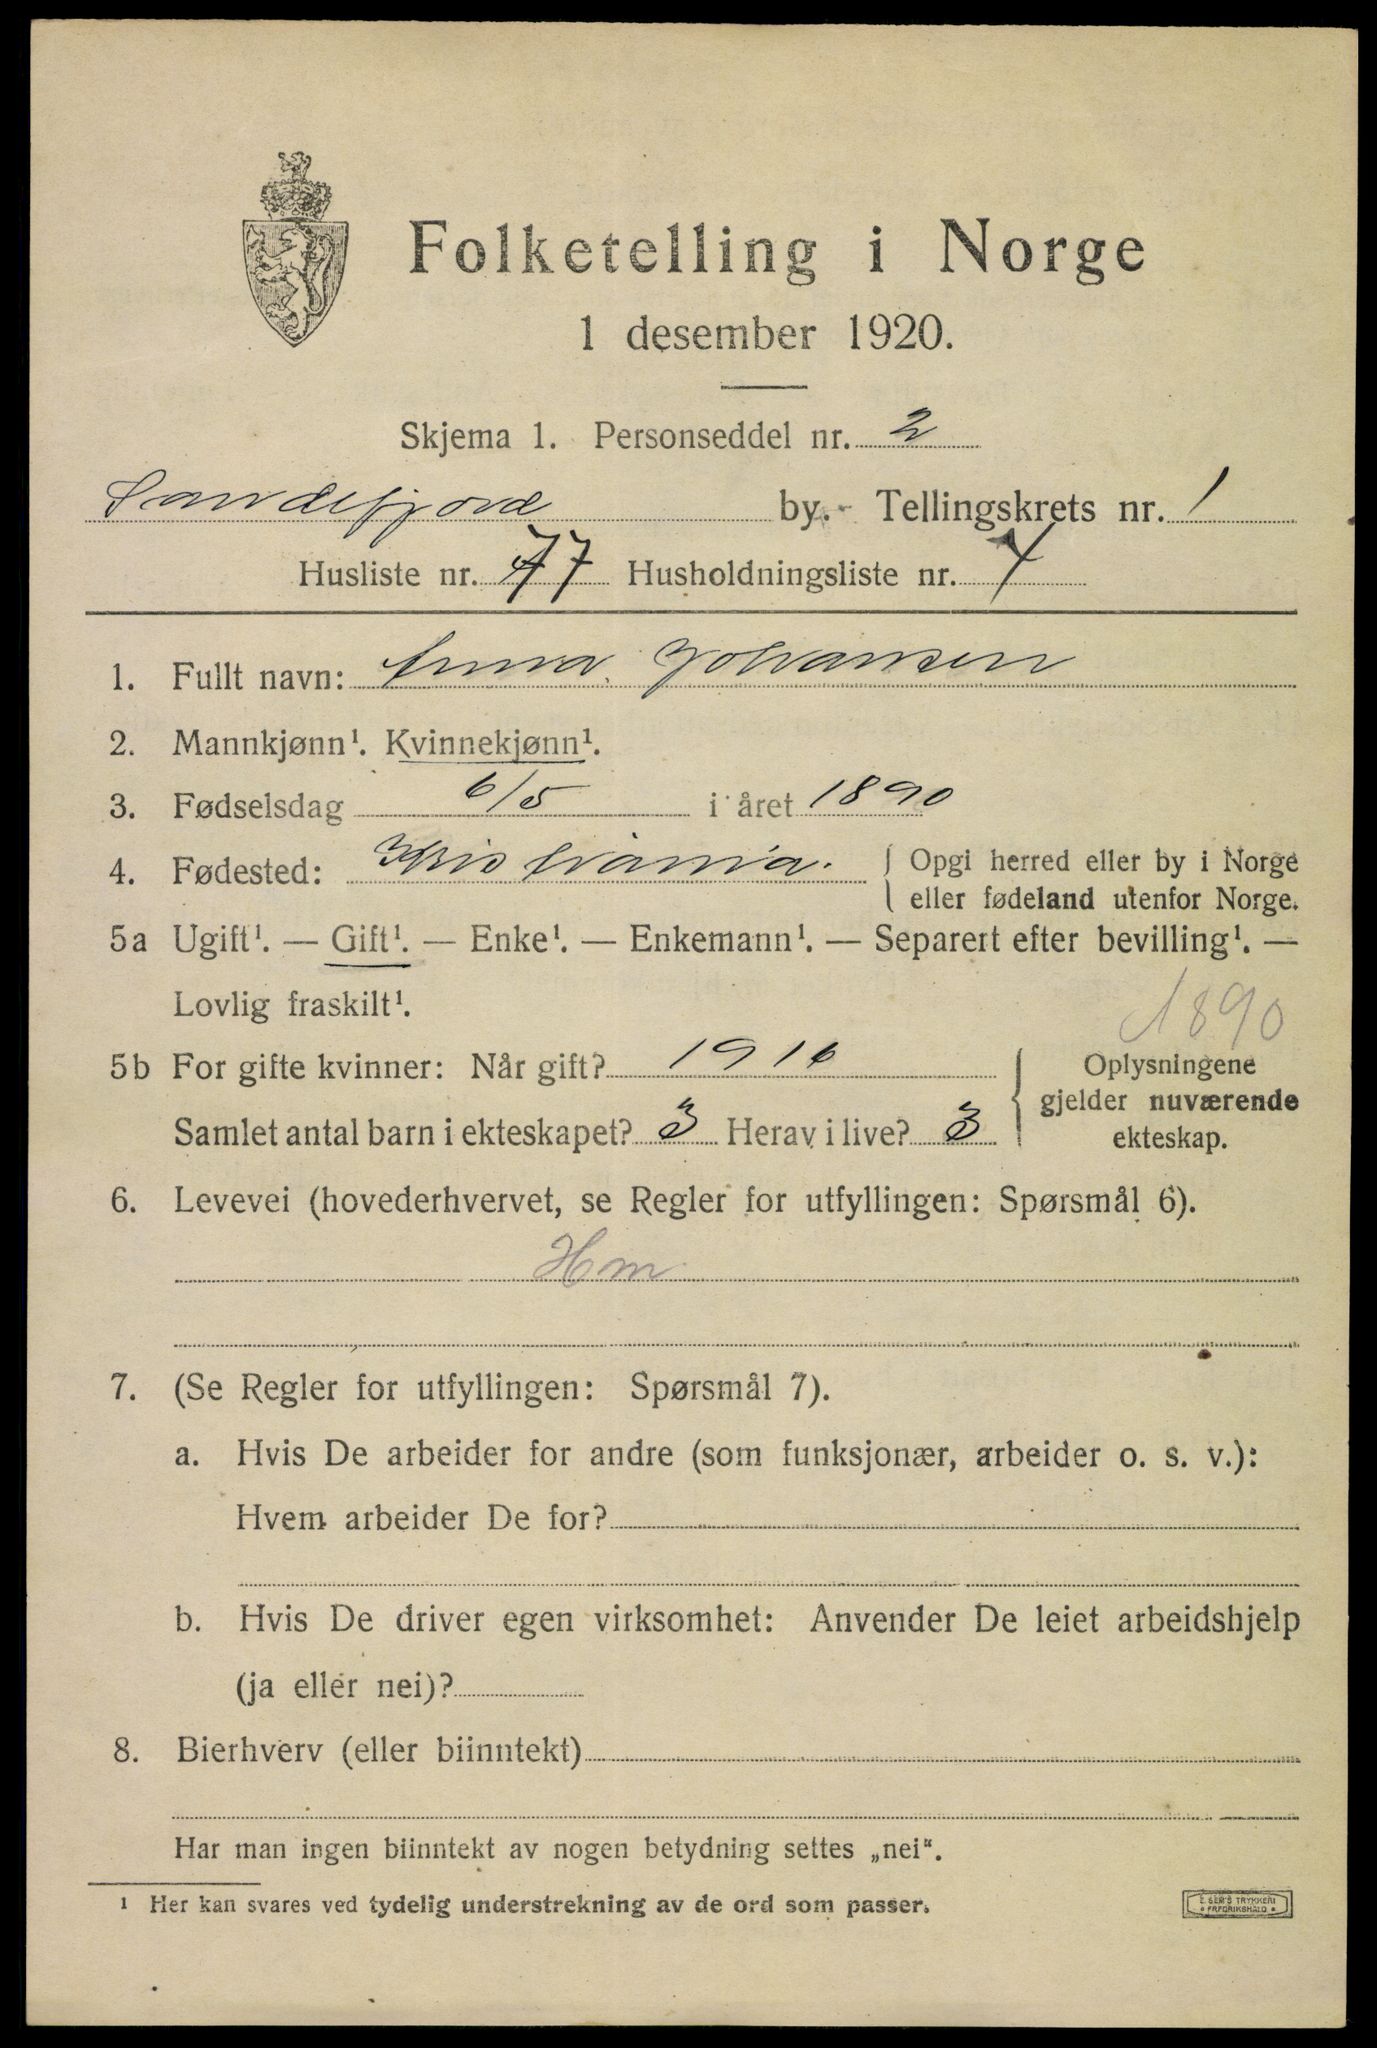 Folketelling i Norge
1 desember 1920.
Skjema 1. Personseddel nr. 2
Sandefjord by. Tellingskrets nr. 1
Husliste nr. 77 Husholdningsliste nr.
1. Fullt navn: Anna Johansen
2. Mannkjønn¹. Kvinnekjønn¹.
3. Fødselsdag 6/5 i året 1890
4. Fødested: Kristiania. { Opgi herred eller by i Norge
eller fødeland utenfor Norge.
5a Ugift¹. — Gift¹. — Enke¹. — Enkemann¹. — Separert efter bevilling¹. —
Lovlig fraskilt¹.
1890
5b For gifte kvinner: Når gift? 1916
Samlet antal barn i ekteskapet? 3 Herav i live? 3
{ Oplysningene
gjelder nuværende
ekteskap.
6. Levevei (hovederhvervet, se Regler for utfyllingen: Spørsmål 6).
Hm
7. (Se Regler for utfyllingen: Spørsmål 7).
a. Hvis De arbeider for andre (som funksjonær, arbeider o. s. v.):
Hvem arbeider De for?
b. Hvis De driver egen virksomhet: Anvender De leiet arbeidshjelp
(ja eller nei)?
8. Bierhverv (eller biinntekt)
Har man ingen biinntekt av nogen betydning settes „nei".
¹ Her kan svares ved tydelig understrekning av de ord som passer.
E. SEM'S TRYKKERI
* FREDRIKSHALD *